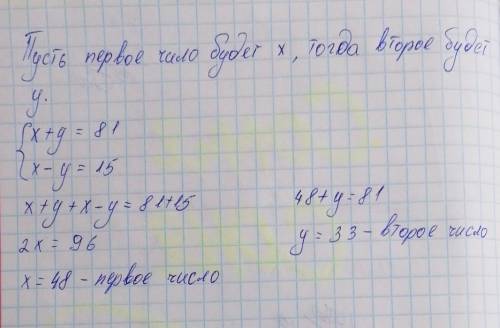 Пусть первое число будет x, тогда второе будет
y.
x+y = 81
x-y = 15
x+y+x-y = 81+15
2x = 96
x = 48 - первое число
48+y=81
y = 33 - второе число